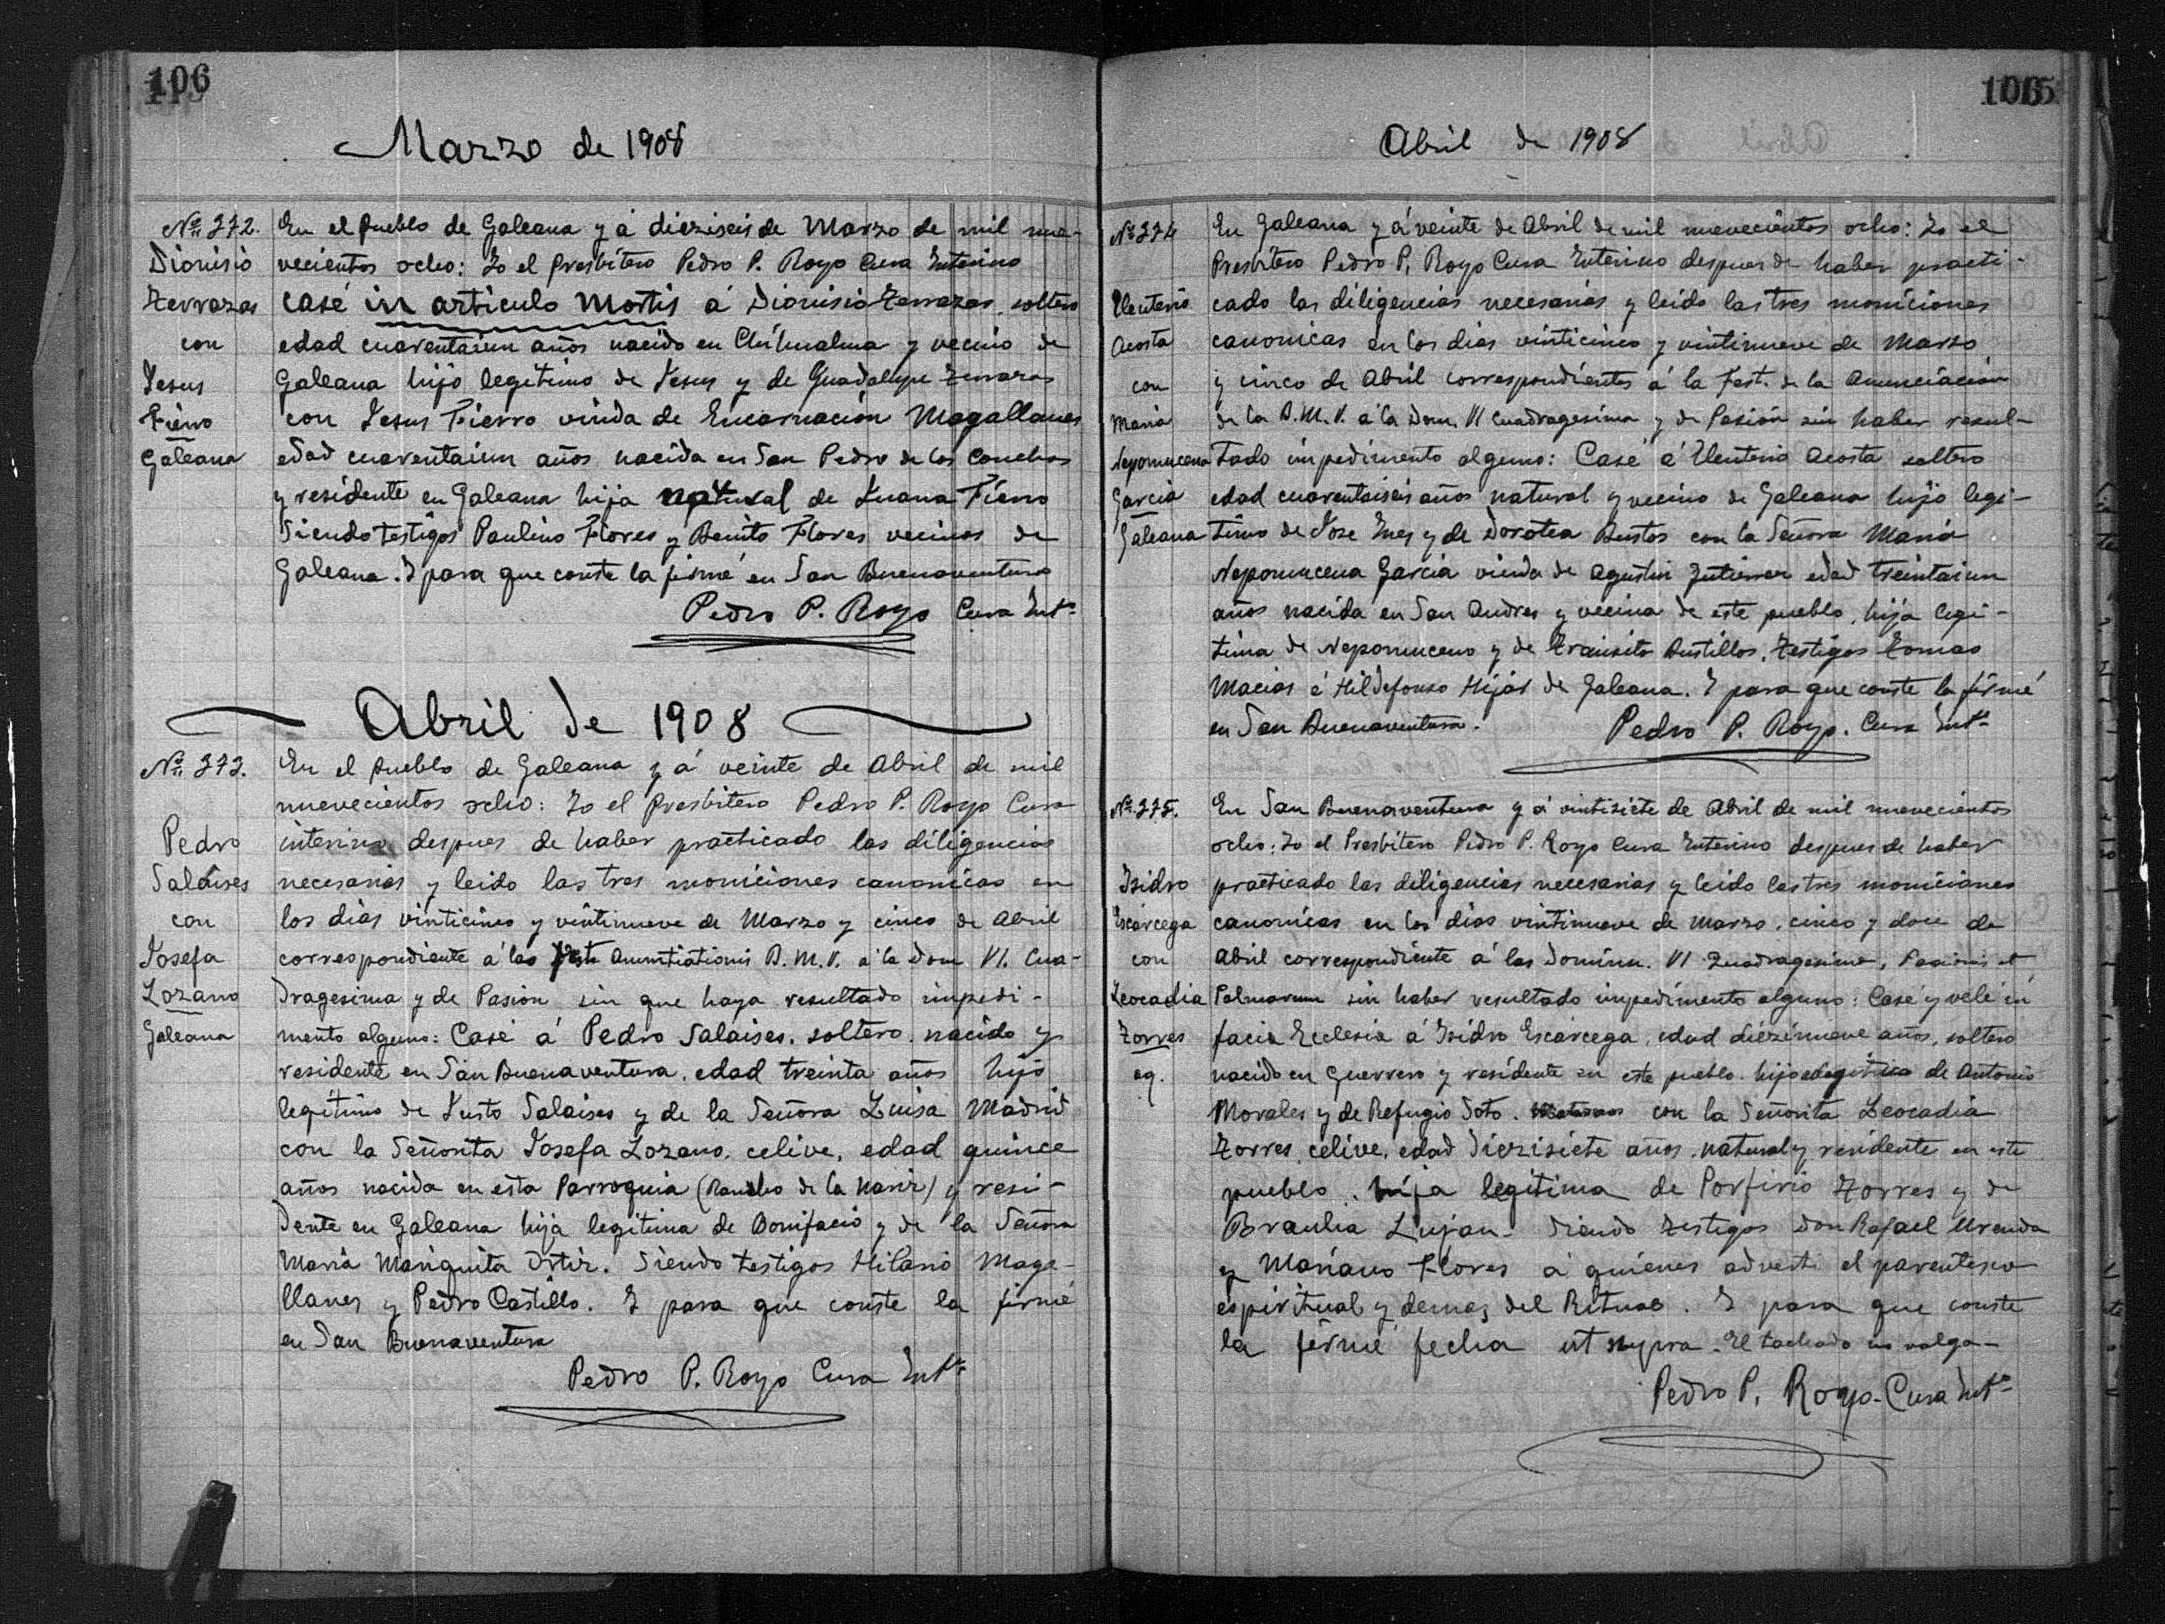 106
Marzo de 1908
No. 372.
Dionisio
Terrazas
con
Jesus
Fierro
Galeana
En el pueblo de Galeana y á dieziseis de Marzo de mil nue-
vecientos ocho: Yo el Presbítero Pedro P. Royo Cura Interino
casé in articulo mortis á Dionisio Terrazas, soltero
edad cuarentaiun años nacido en Chihuahua y vecino de
Galeana hijo legítimo de Jesus y de Guadalupe Terrazas
con Jesus Fierro viuda de Encarnación Magallanes
edad cuarentaiun años nacida en San Pedro de los Conchos
y residente en Galeana hija natural de Juana Fierro
Siendo testigos Paulino Flores y Benito Flores vecinos de
Galeana. Y para que conste la firmé en San Buenaventura
Pedro P. Royo Cura Int°
Abril de 1908
No. 373.
Pedro
Salaises
con
Josefa
Lozano
Galeana
En el pueblo de Galeana y á veinte de Abril de mil
nuevecientos ocho: Yo el Presbítero Pedro P. Royo Cura
interino despues de haber practicado las diligencias
necesarias y leido las tres moniciones canonicas en
los días vinticinco y vintinueve de Marzo y cinco de Abril
correspondiente á las Annuntiationis B. M. V. á la Dom VI. Cua-
dragesima y de Pasión sin que haya resultado impedi-
mento alguno: Casé á Pedro Salaises, soltero, nacido y
residente en San Buenaventura, edad treinta años hijo
legítimo de Justo Salaises y de la Señora Luisa Madrid
con la Señorita Josefa Lozano, celive, edad quince
años nacida en esta Parroquia (Rancho de la Nariz) y resi-
dente en Galeana hija legítima de Bonifacio y de la Señora
María Mariquita Ortiz. Siendo testigos Hilario Maga-
llanes y Pedro Castillo. Y para que conste la firmé
en San Buenaventura
Pedro P. Royo Cura Int°
Abril de 1908
No. 374
Eleuterio
Acosta
con
María
Nepomucena
García
Galeana
En Galeana y á veinte de Abril de mil nuevecientos ocho: Yo el
Presbítero Pedro P. Royo Cura Interino despues de haber practi-
cado las diligencias necesarias y leido las tres moniciones
canonicas en los días vinticinco y vintinueve de Marzo
y cinco de Abril correspondientes á la Fest. de la Anunciación
de la B. M. V. á la Dom. VI Cuadragesima y de Pasión sin haber resul-
tado impedimento alguno: Casé á Eleuterio Acosta soltero
edad cuarentaiseis años natural y vecino de Galeana hijo legí-
timo de Jose Ines y de Dorotea Bustos con la Señora María
Nepomucena García viuda de Agustin Gutierrez edad treintaiun
años nacida en San Andres y vecina de este pueblo, hija legí-
tima de Nepomuceno y de Tránsito Bustillos. Testigos Tomas
Macias é Hildefonso Hijár de Galeana. Y para que conste la firmé
en San Buenaventura.
Pedro P. Royo. Cura Int°
No. 375.
Isidro
Escárcega
con
Leocadia
Torres
En San Buenaventura y á vintisiete de Abril de mil nuevecientos
ocho: Yo el Presbítero Pedro P. Royo Cura Interino despues de haber
practicado las diligencias necesarias y leido las tres moniciones
canonicas en los días vintinueve de Marzo, cinco y doce de
Abril correspondiente á las Domin. VI Quadragesima, Pasionis et
Palmarum sin haber resultado impedimento alguno: Casé y velé in
facie Eclesia á Isidro Escárcega, edad diezinueve años, soltero
nacido en Guerrero y residente en este pueblo hijo de Antonio
Morales y de Refugio Soto. con la Señorita Leocadia
Torres, celive, edad diezisiete años, natural y residente en este
pueblo, hija legítima de Porfirio Torres y de
Braulia Lujan. Siendo testigos Don Rafael Urenda
y Mariano Flores á quiénes advertí el parentesco
espiritual y demas del Ritual. Y para que conste
la firmé fecha ut supra. El tachado no valga-
Pedro P. Royo. Cura Int°